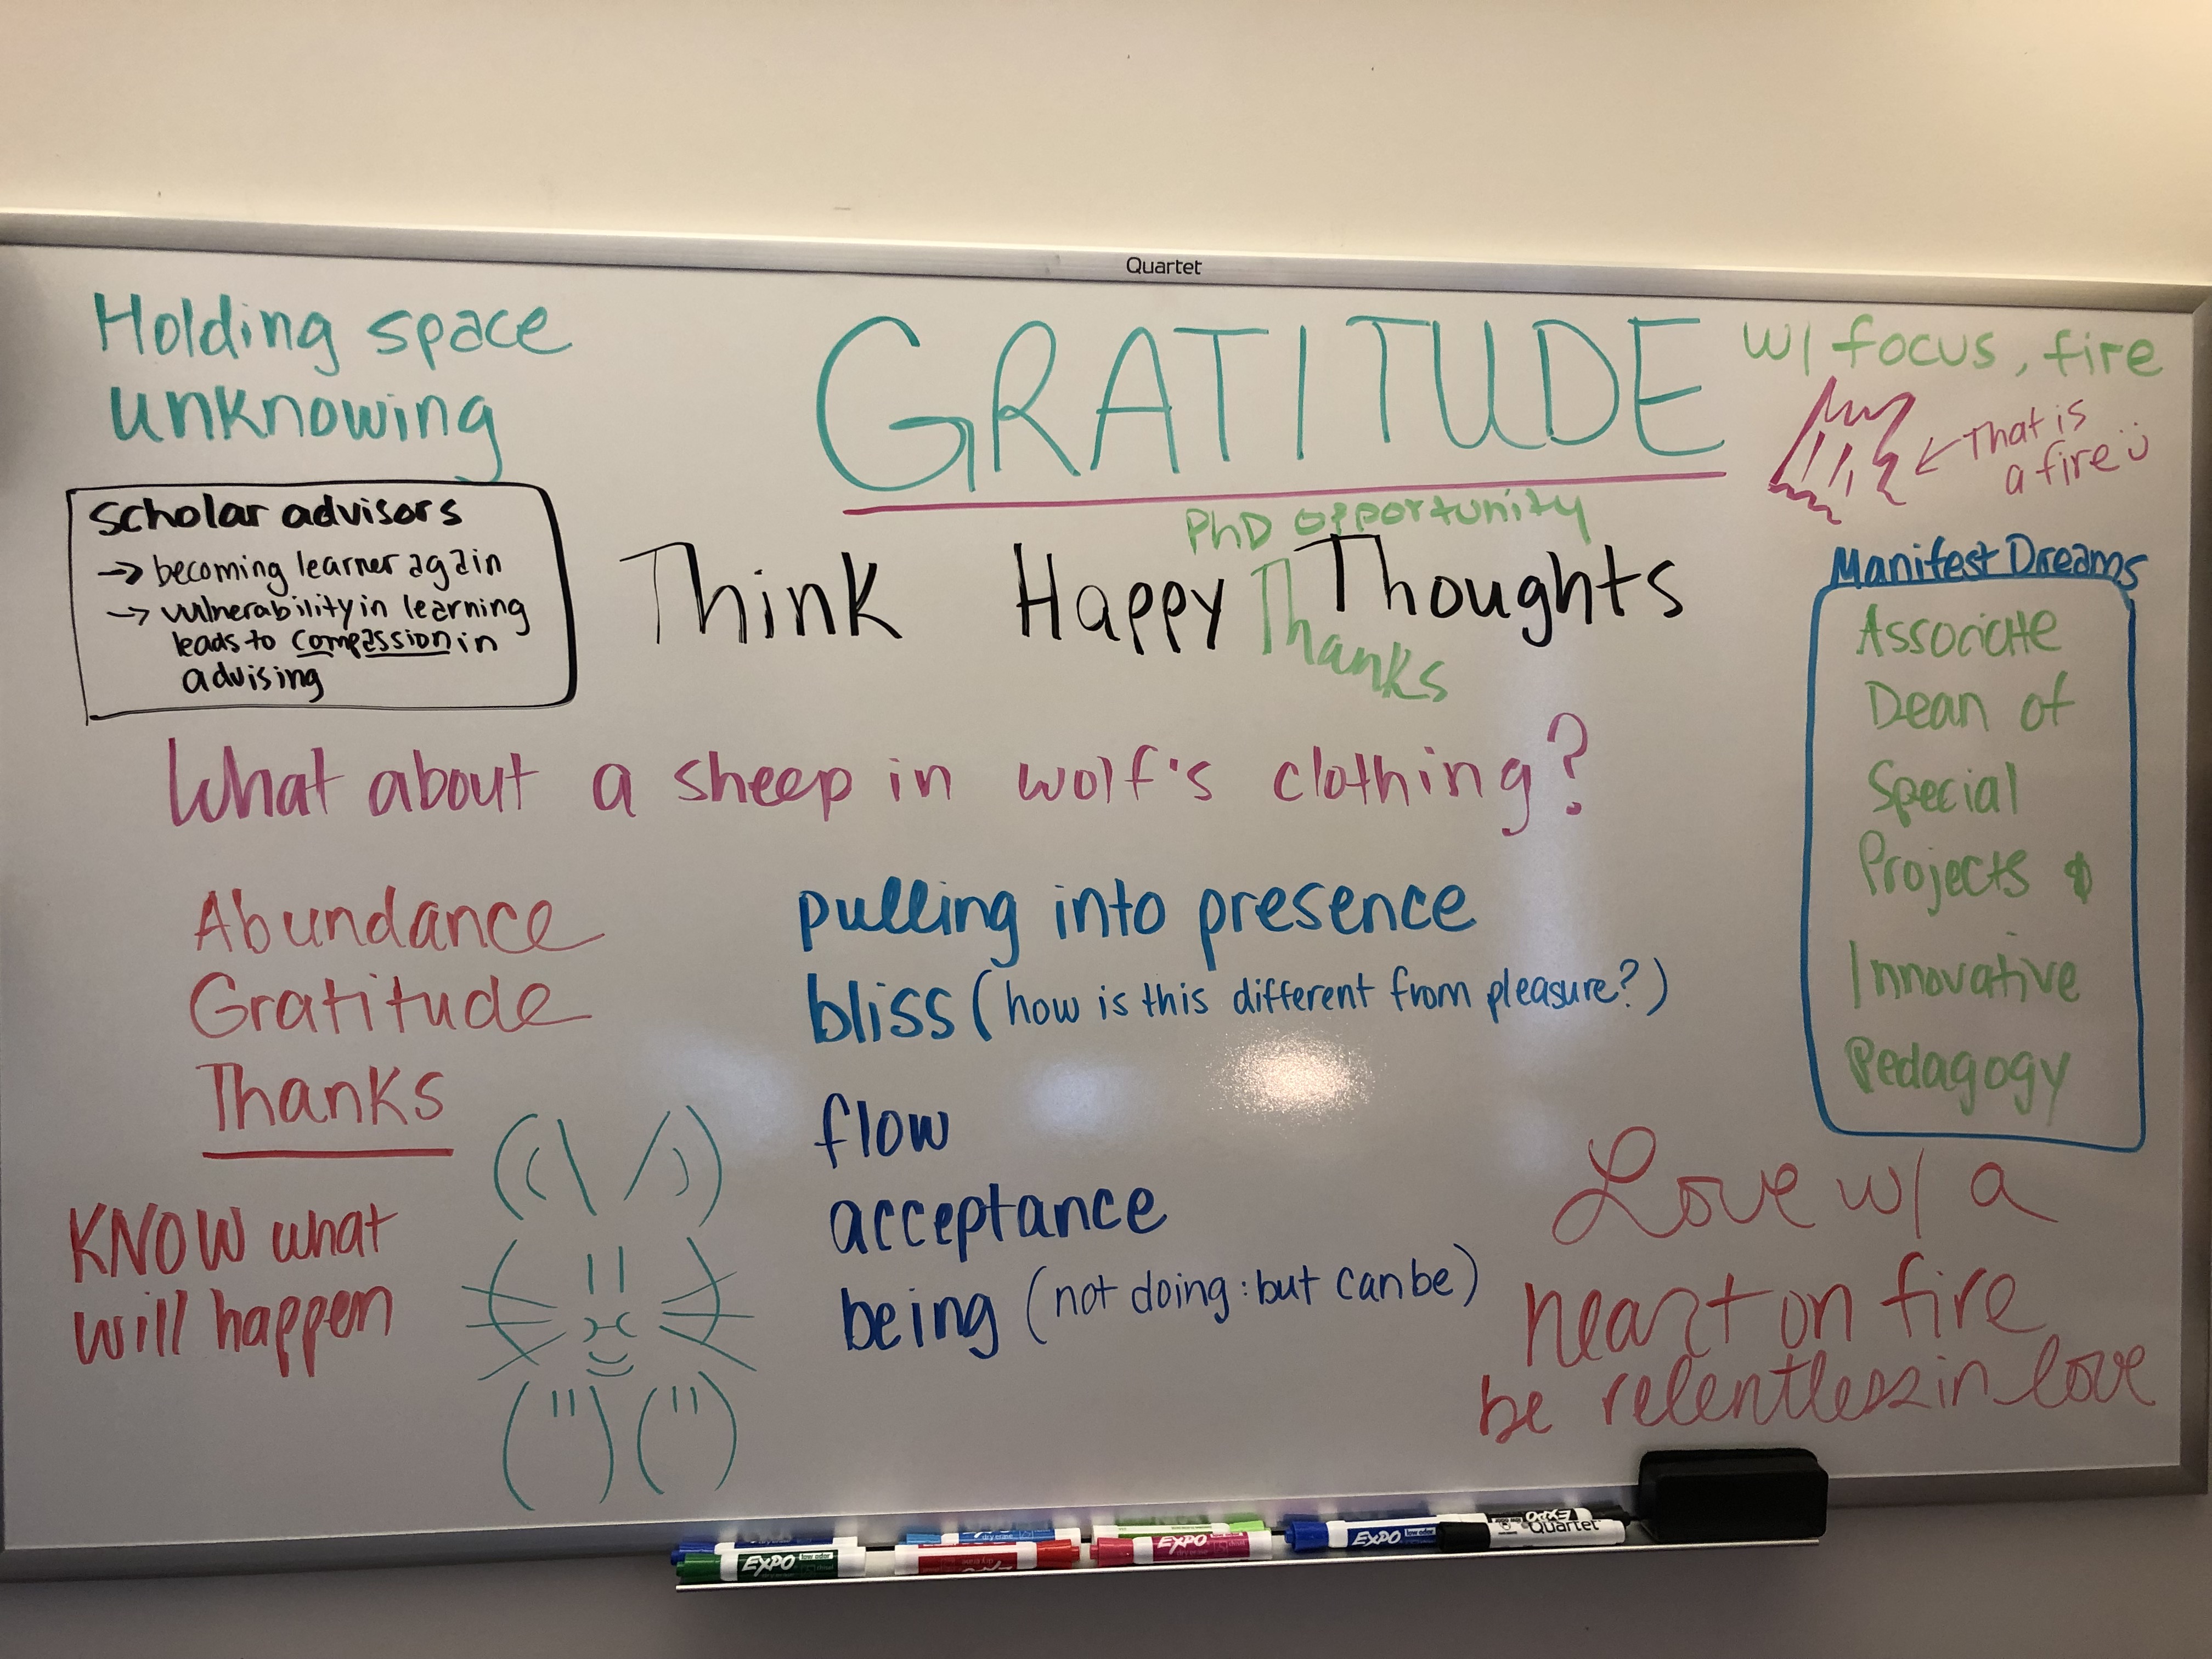 Quartet
Holding space
unknowing
GRATITUDE
w/ focus, fire
That is
a fire
scholar advisors
→ becoming learner again
→ vulnerability in learning
leads to compassion in
advising
PhD opportunity
Think Happy Thoughts
Thanks
Manifest Dreams
Associate
Dean of
Special
Projects &
Innovative
Pedagogy
What about a sheep in wolf's clothing?
Abundance
Gratitude
Thanks
KNOW what
will happen
pulling into presence
bliss (how is this different from pleasure?)
flow
acceptance
being (not doing: but can be)
Love w/ a
heart on fire
be relentless in love
EXPO low odor
EXPO
EXPO low odor
Quartet